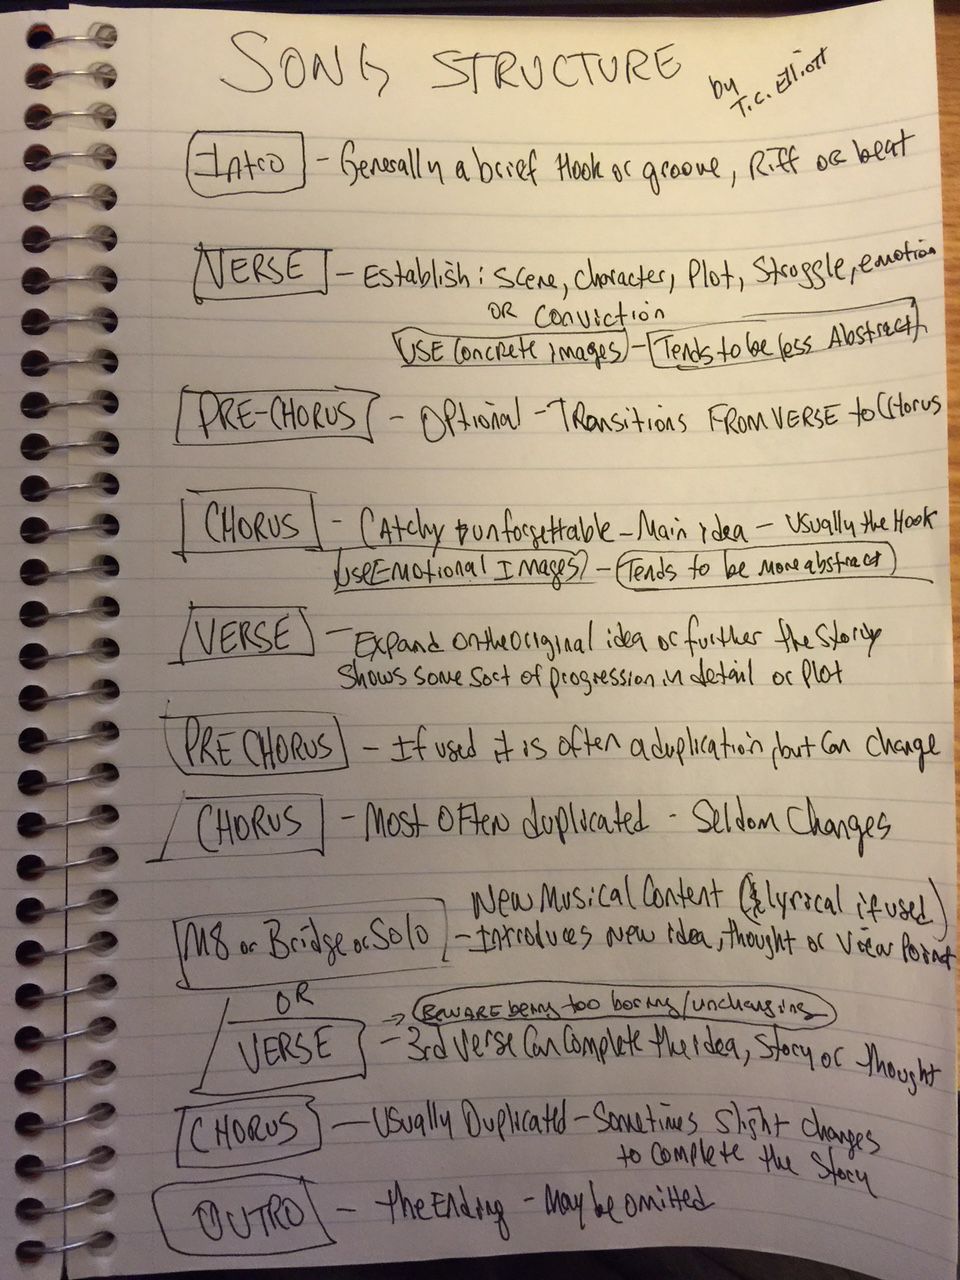 SONG STRUCTURE
by T.C. Elliott
Intro - Generally a brief Hook or groove, Riff or beat
VERSE - Establish: scene, character, Plot, Struggle, emotion
OR Conviction
USE Concrete images - Tends to be less Abstract
PRE-CHORUS - Optional - Transitions FROM VERSE to Chorus
CHORUS - Catchy & unforgettable - Main idea - Usually the Hook
Use Emotional Images - Tends to be more abstract
VERSE - Expand on the original idea or further the story
Shows some sort of progression in detail or Plot
PRE CHORUS - If used it is often a duplication, but can change
CHORUS - Most Often duplicated - Seldom Changes
New Musical Content (& lyrical if used)
M8 or Bridge or Solo - Introduces new idea, thought or View Point
OR
→ BEWARE being too boring/unchanging
VERSE - 3rd Verse Can Complete the idea, Story or thought
CHORUS - Usually Duplicated - Sometimes slight changes
to complete the Story
OUTRO - the Ending - May be omitted